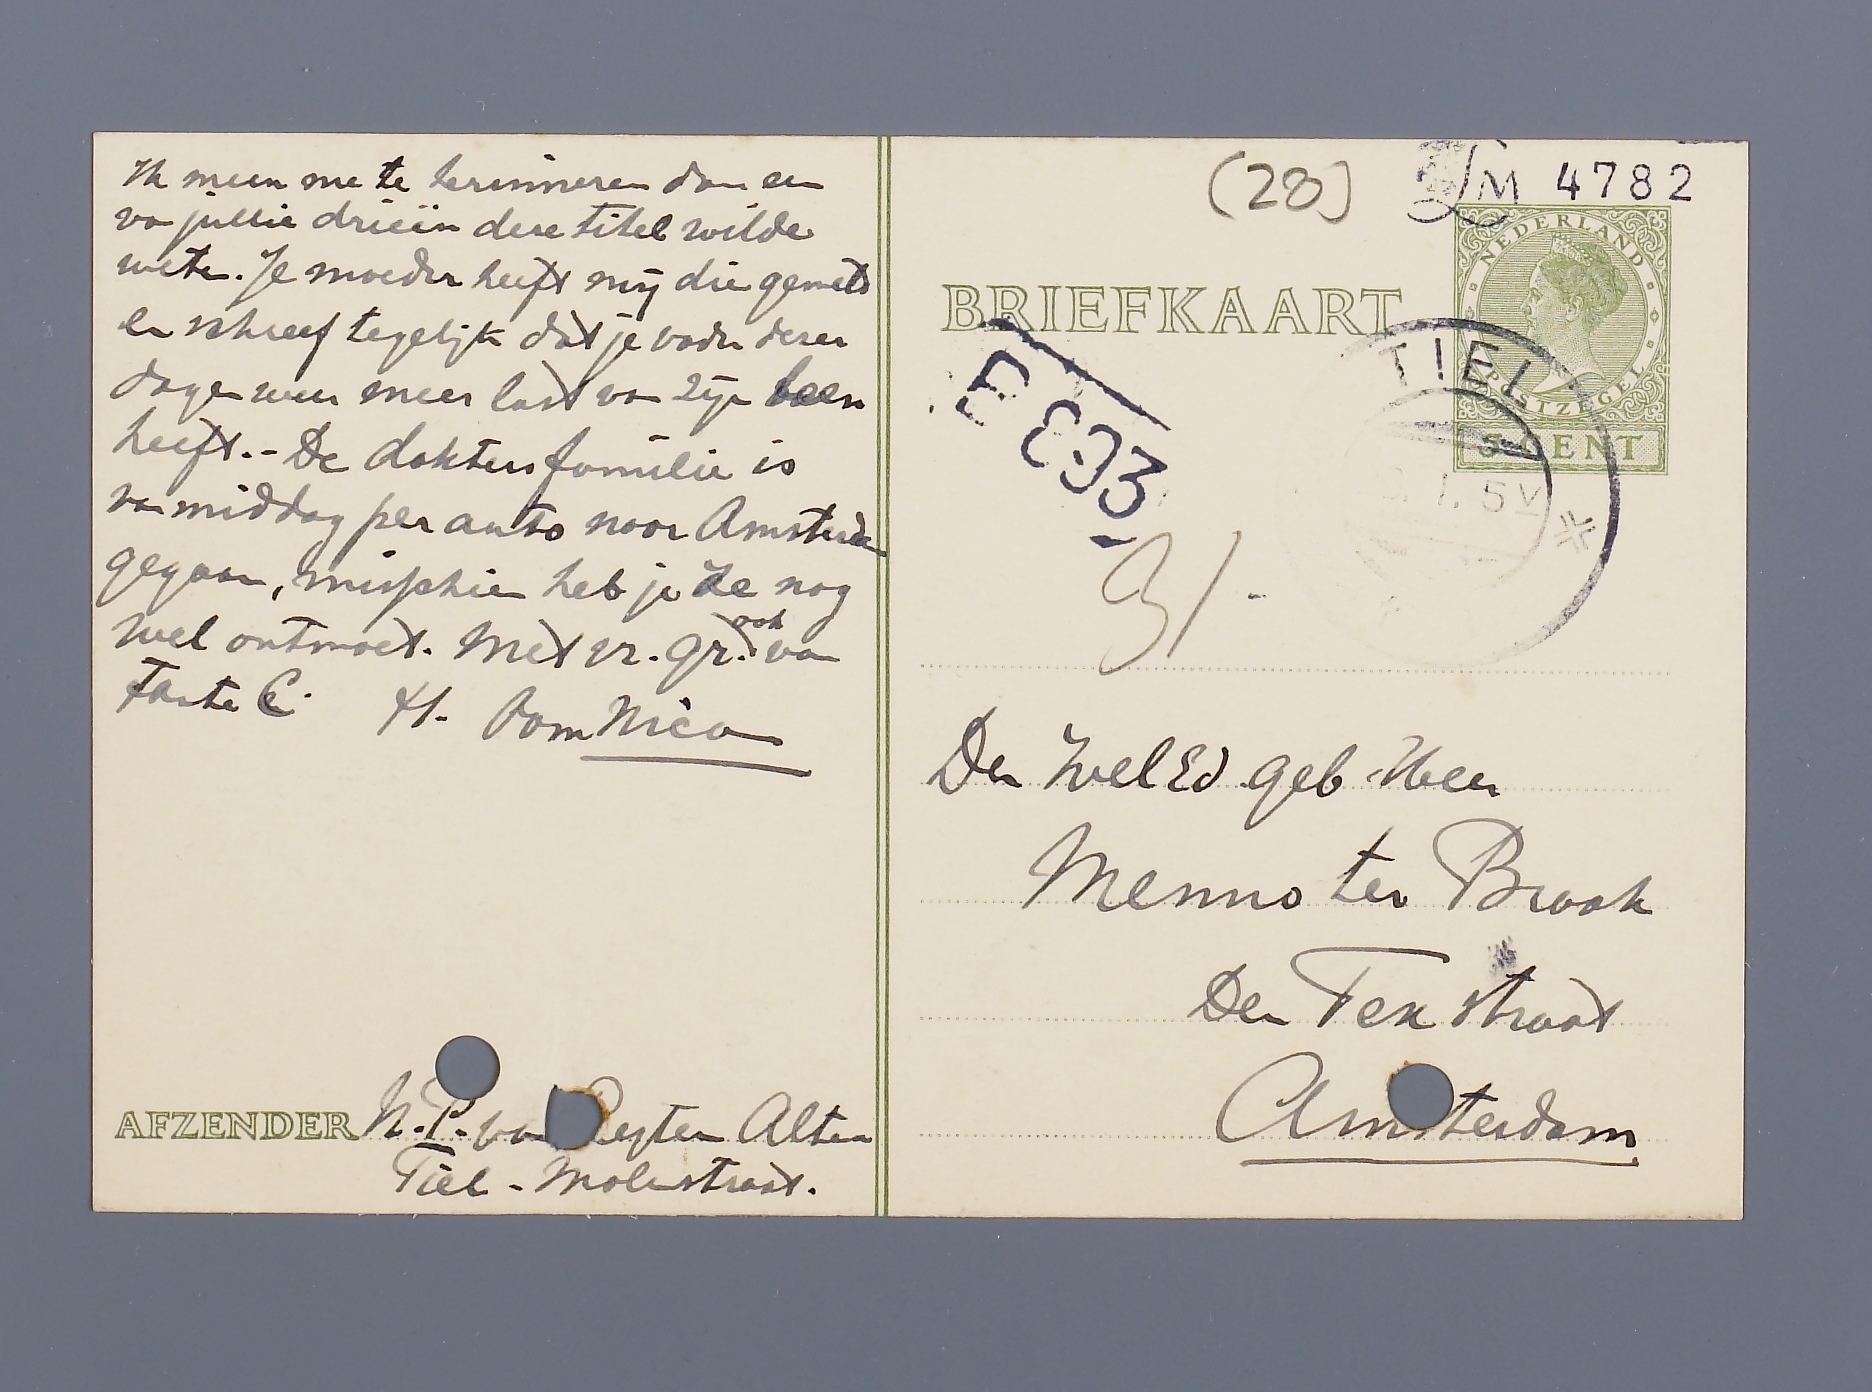 Ik meen me te herinneren dan een
va jullie drieën deze titel wilde
weten. Je moeder heeft mij die gemeld
en schreef tegelijk dat je vader dezer
dagen weer meer last van zijn been
heeft.- De doktersfamilie is
vanmiddag per auto naar Amsterdam
gegaan, misschien heb je ze nog
wel ontmoet. Met vr. gr. ook van
tante C. Oom Nico
AFZENDER N.P. van Alten
Tiel - Molenstraat.
(28)
M 4782
NEDERLAND
POSTZEGEL
5 CENT
BRIEFKAART
TIEL
E 893
31-
Den WelEd geb Heer
Menno ter Braak
Den Tex straat
Amsterdam